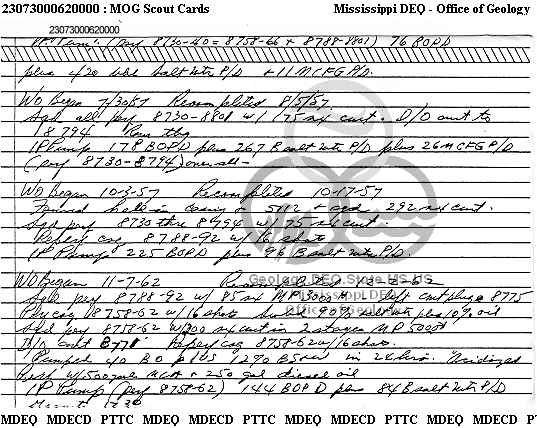 23073000620000 : MOG Scout Cards Mississippi DEQ - Office of Geology
23073000620000
IP Pump: (perf 8730-40 = 8758-66 + 8788-8801) 76 BOPD
plus 420 bbl salt wtr P/D + 11 MCFG P/D.
WO Began 7/30/57 Recompleted 8/5/57
Sqd all perf 8730-8801 w/ 175 sx cmt. D/O cmt to
8794 Run tbg
IP Pump 178 BOPD plus 267 B salt wtr P/D plus 26 MCFG P/D
(perf 8730-8794) overall-
WO Began 10-3-57 Recompleted 10-17-57
Found hole in casing 5112 + sqd. 292 sx cmt.
Sqd perf 8730 thru 8794 w/ 75 sx cmt
Reperf csg 8788-92 w/ 16 shots
IP Pump 225 BOPD plus 96 B salt wtr P/D.
WO Began 11-7-62 Recompleted 12-2-62
Geology.DEQ.State.MS.US
Sqd perf 8788-92 w/ 85 sx MP 3000# left cmt plug @ 8775
Mississippi DEQ
Perf csg 8758-62 w/ 16 shots Swab 90% wtr plus 10% oil
Office of Geology
Sqd perf 8758-62 w/ 200 sx cmt in 2 stages MP 5000#
D/O cmt 8771' Reperf csg 8758-62 w/ 16 shots.
Pumped 40 BO plus 1290 BSW in 24 hrs. Acidized
perf w/ 500 gal MCA + 250 gal diesel oil
IP Pump (perf 8758-62) 144 BOPD plus 84 B salt wtr P/D
MDEQ MDECD PTTC MDEQ MDECD PTTC MDEQ MDECD PTTC MDEQ MDECD PT